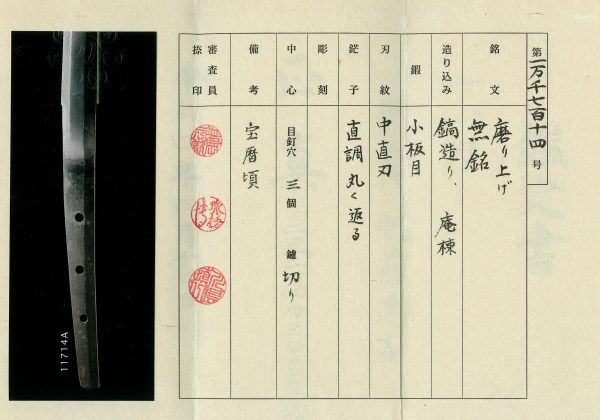 第一万千七百十四号
銘文 磨り上げ 無銘
造り込み 鎬造り、庵棟
鍛 小板目
刃紋 中直刃
鋩子 直調丸く返る
彫刻
中心 目釘穴 三個 鑢 切り
備考 宝暦頃
審査員捺印
11714A